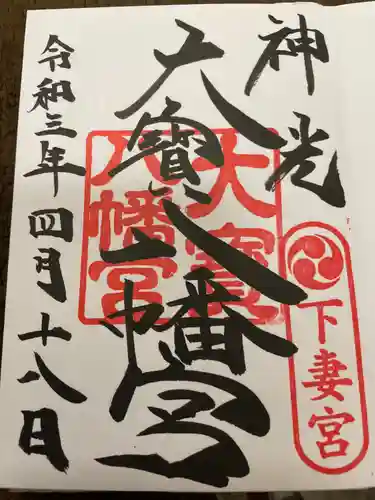 神光
大寳八幡宮
令和三年四月十八日
大寳
八幡宮
下妻宮